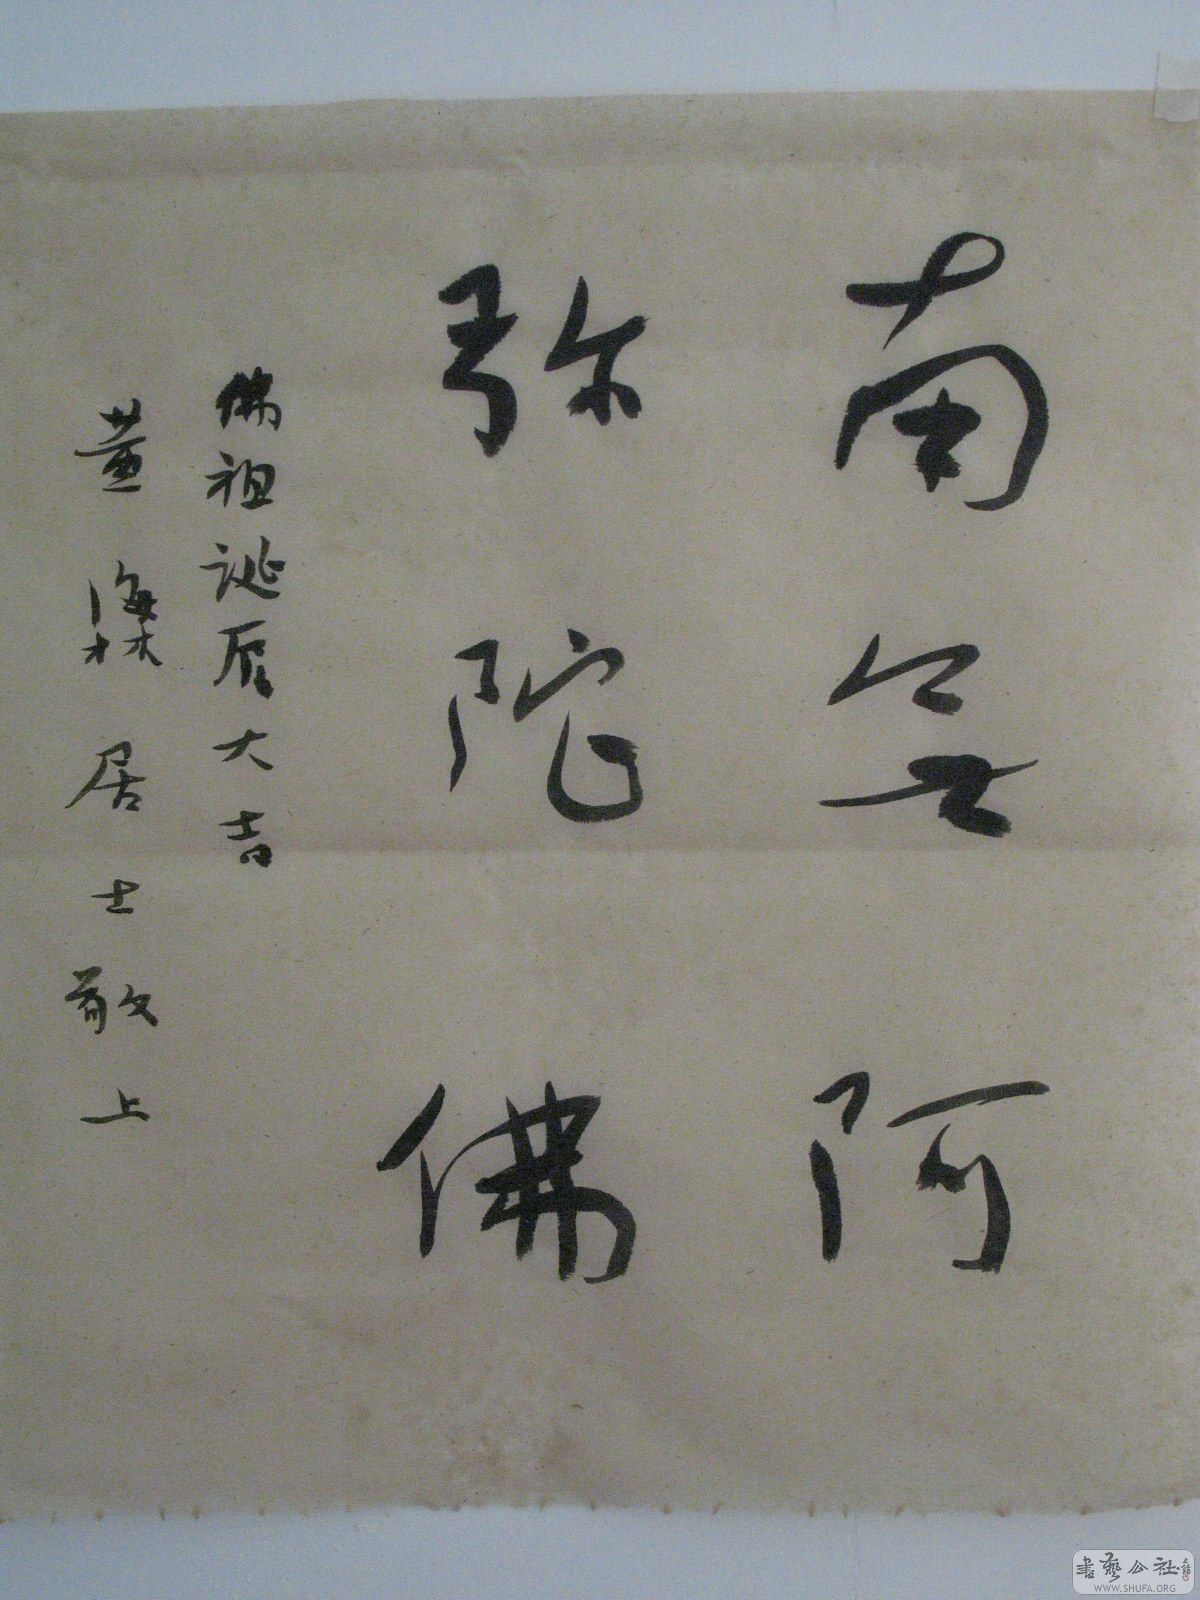 南無阿
弥陀佛
佛祖誕辰大吉
海林居士敬上
書藝公社
WWW.SHUFA.ORG